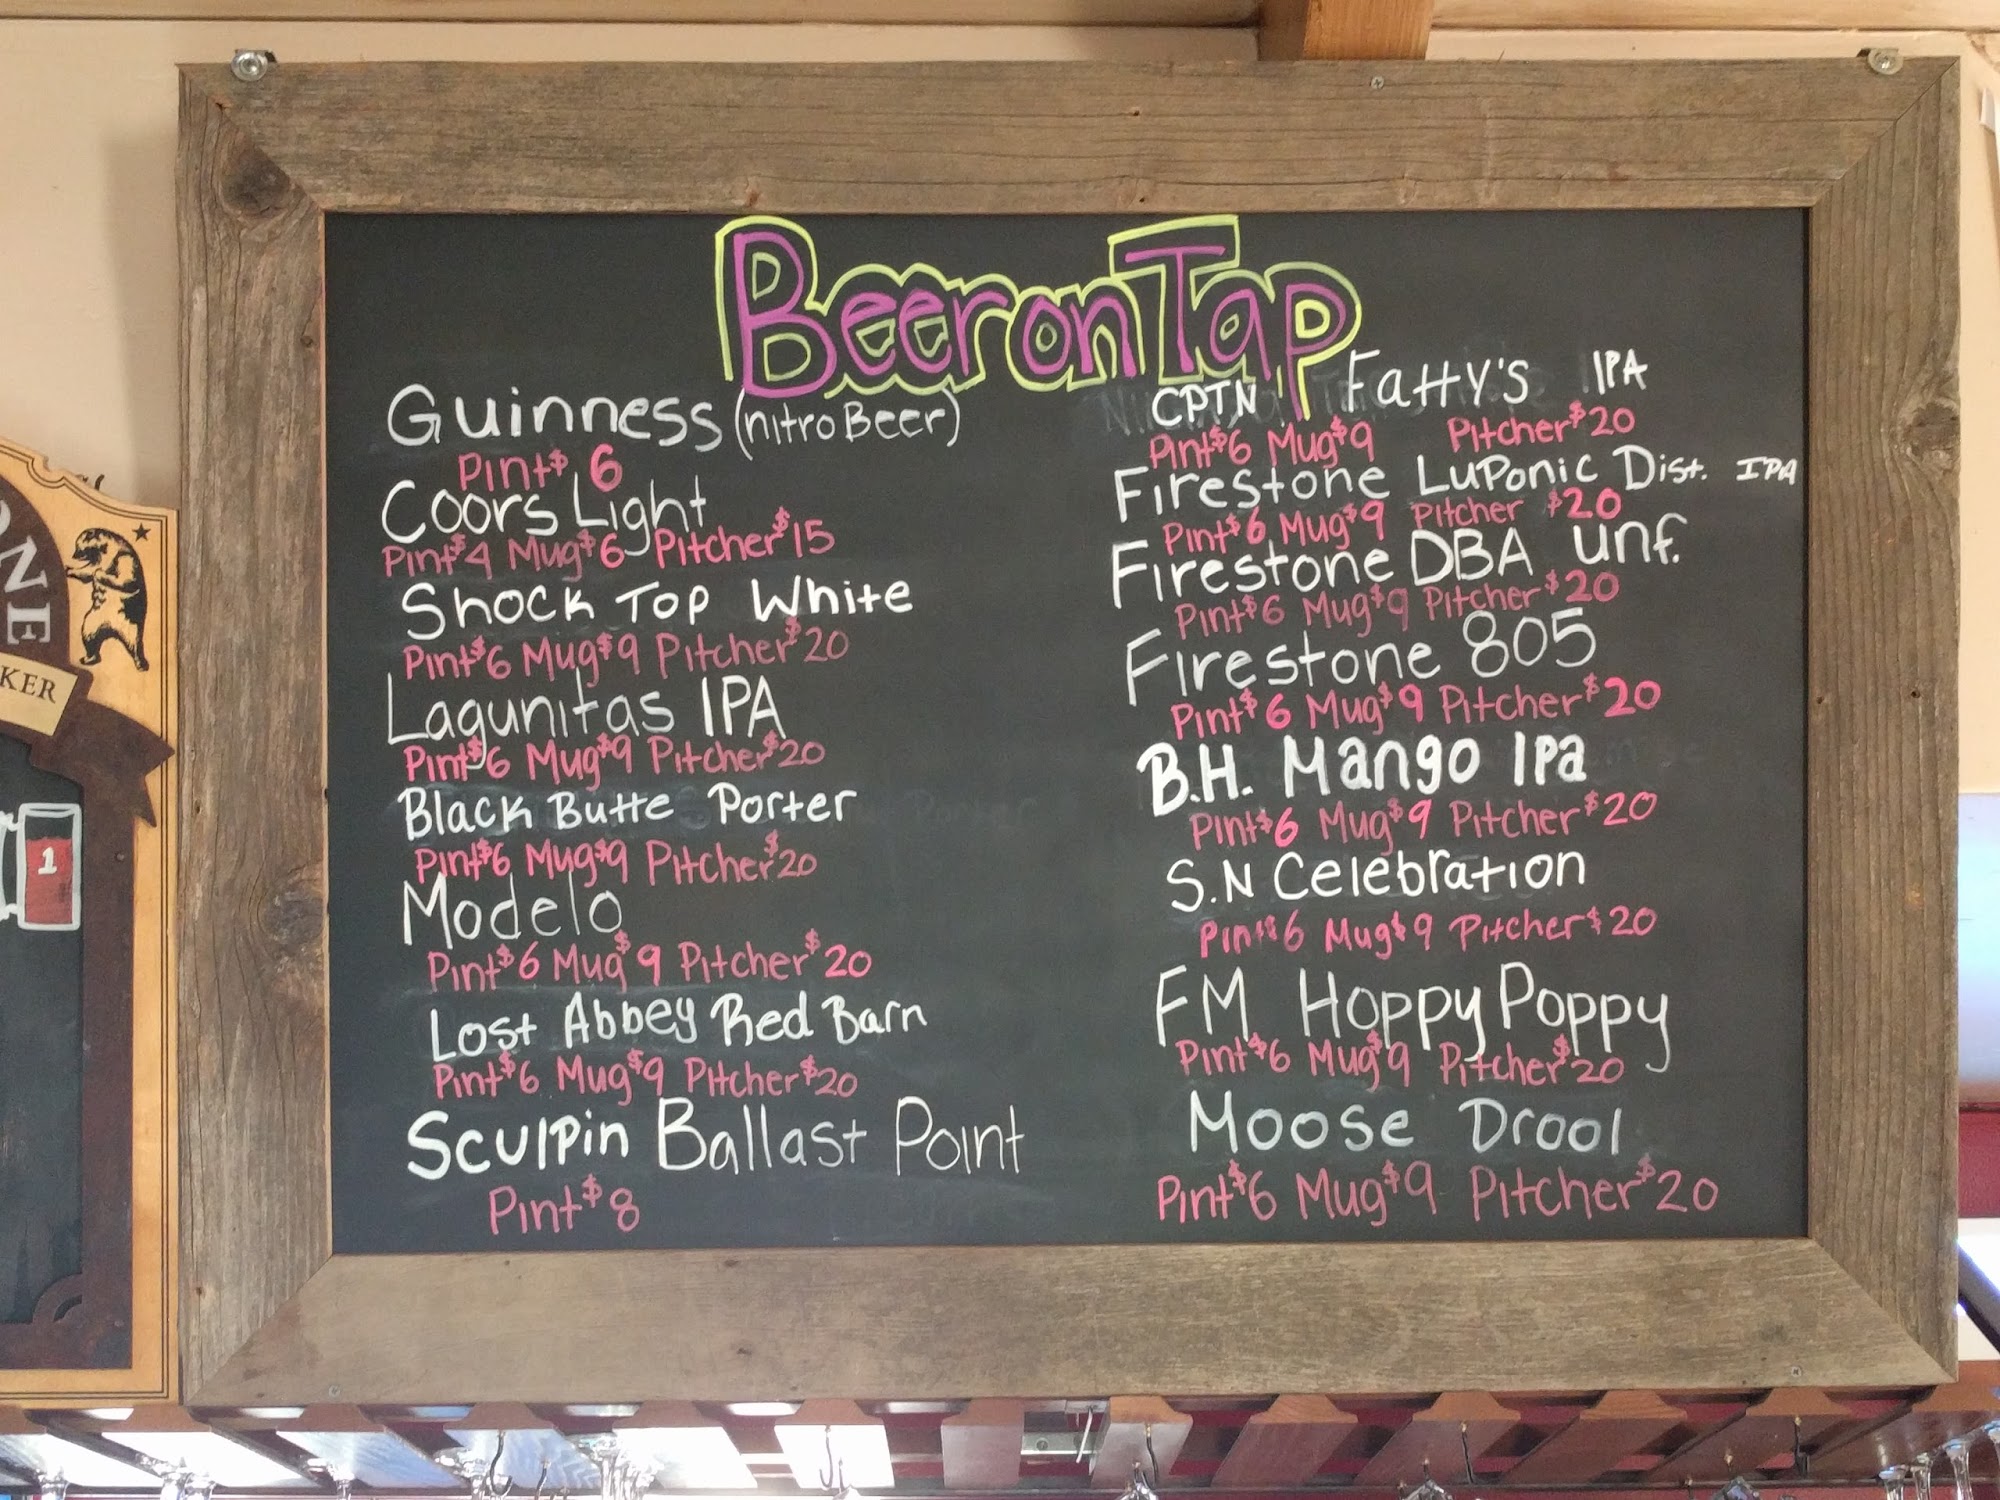 Beer on Tap
Guinness (nitro Beer)
Pint $6
Coors Light
Pint $4 Mug $6 Pitcher $15
Shock Top White
Pint $6 Mug $9 Pitcher $20
Lagunitas IPA
Pint $6 Mug $9 Pitcher $20
Black Butte Porter
Pint $6 Mug $9 Pitcher $20
Modelo
Pint $6 Mug $9 Pitcher $20
Lost Abbey Red Barn
Pint $6 Mug $9 Pitcher $20
Sculpin Ballast Point
Pint $8
CPTN Fatty's IPA
Pint $6 Mug $9 Pitcher $20
Firestone Luponic Dist. IPA
Pint $6 Mug $9 Pitcher $20
Firestone DBA unf.
Pint $6 Mug $9 Pitcher $20
Firestone 805
Pint $6 Mug $9 Pitcher $20
B.H. Mango Ipa
Pint $6 Mug $9 Pitcher $20
S.N Celebration
Pint $6 Mug $9 Pitcher $20
FM Hoppy Poppy
Pint $6 Mug $9 Pitcher $20
Moose Drool
Pint $6 Mug $9 Pitcher $20
ONE
KER
1